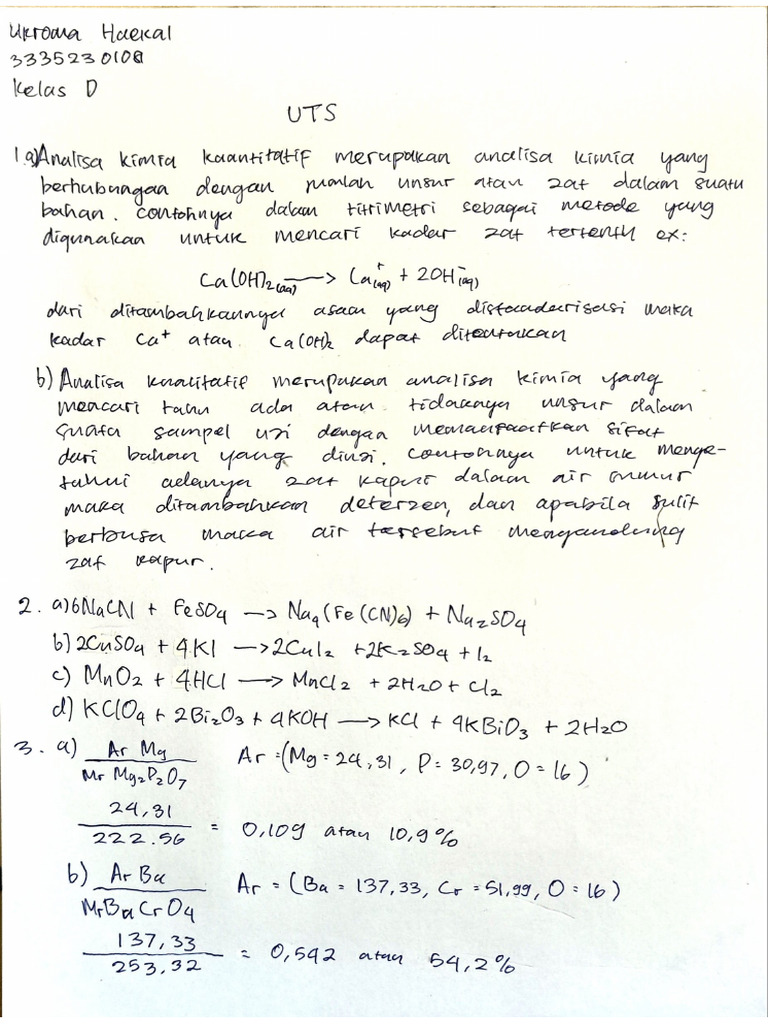 Ukroma Haekal
3335230100
Kelas D
UTS
1.a) Analisa kimia kuantitatif merupakan analisa kimia yang
berhubungan dengan jumlah unsur atau zat dalam suatu
bahan. contohnya dalam titrimetri sebagai metode yang
digunakan untuk mencari kadar zat tertentu ex:
Ca(OH)₂(aq) → Ca⁺(aq) + 2OH⁻(aq)
dari ditambahkannya asam yang distandarisasi maka
kadar Ca⁺ atau Ca(OH)₂ dapat ditentukan
b) Analisa kualitatif merupakan analisa kimia yang
mencari tahu ada atau tidaknya unsur dalam
suatu sampel uji dengan memanfaatkan sifat
dari bahan yang diuji. contohnya untuk menge-
tahui adanya zat kapur dalam air sumur
maka ditambahkan deterjen, dan apabila sulit
berbusa maka air tersebut mengandung
zat kapur.
2. a) 6NaCN + FeSO₄ → Na₄(Fe(CN)₆) + Na₂SO₄
b) 2CuSO₄ + 4KI → 2CuI₂ + 2K₂SO₄ + I₂
c) MnO₂ + 4HCl → MnCl₂ + 2H₂O + Cl₂
d) KClO₄ + 2Bi₂O₃ + 4KOH → KCl + 4KBiO₃ + 2H₂O
3. a) Ar Mg / Mr Mg₂P₂O₇ Ar = (Mg = 24,31, P = 30,97, O = 16)
24,31 / 222.56 = 0,109 atau 10,9%
b) Ar Ba / Mr BaCrO₄ Ar = (Ba = 137,33, Cr = 51,99, O = 16)
137,33 / 253,32 = 0,542 atau 54,2%